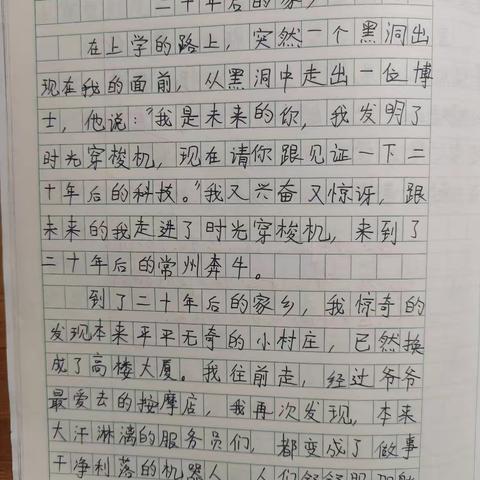 二十年后的家乡
在上学的路上，突然一个黑洞出
现在我的面前，从黑洞中走出一位博
士，他说："我是未来的你，我发明了
时光穿梭机，现在请你跟见证一下二
十年后的科技。"我又兴奋又惊讶，跟
未来的我走进了时光穿梭机，来到了
二十年后的常州奔牛。
到了二十年后的家乡，我惊奇的
发现本来平平无奇的小村庄，已然换
成了高楼大厦。我往前走，经过爷爷
最爱去的按摩店，我再次发现，本来
大汗淋漓的服务员们，都变成了做事
干净利落的机器人，人们舒舒服服